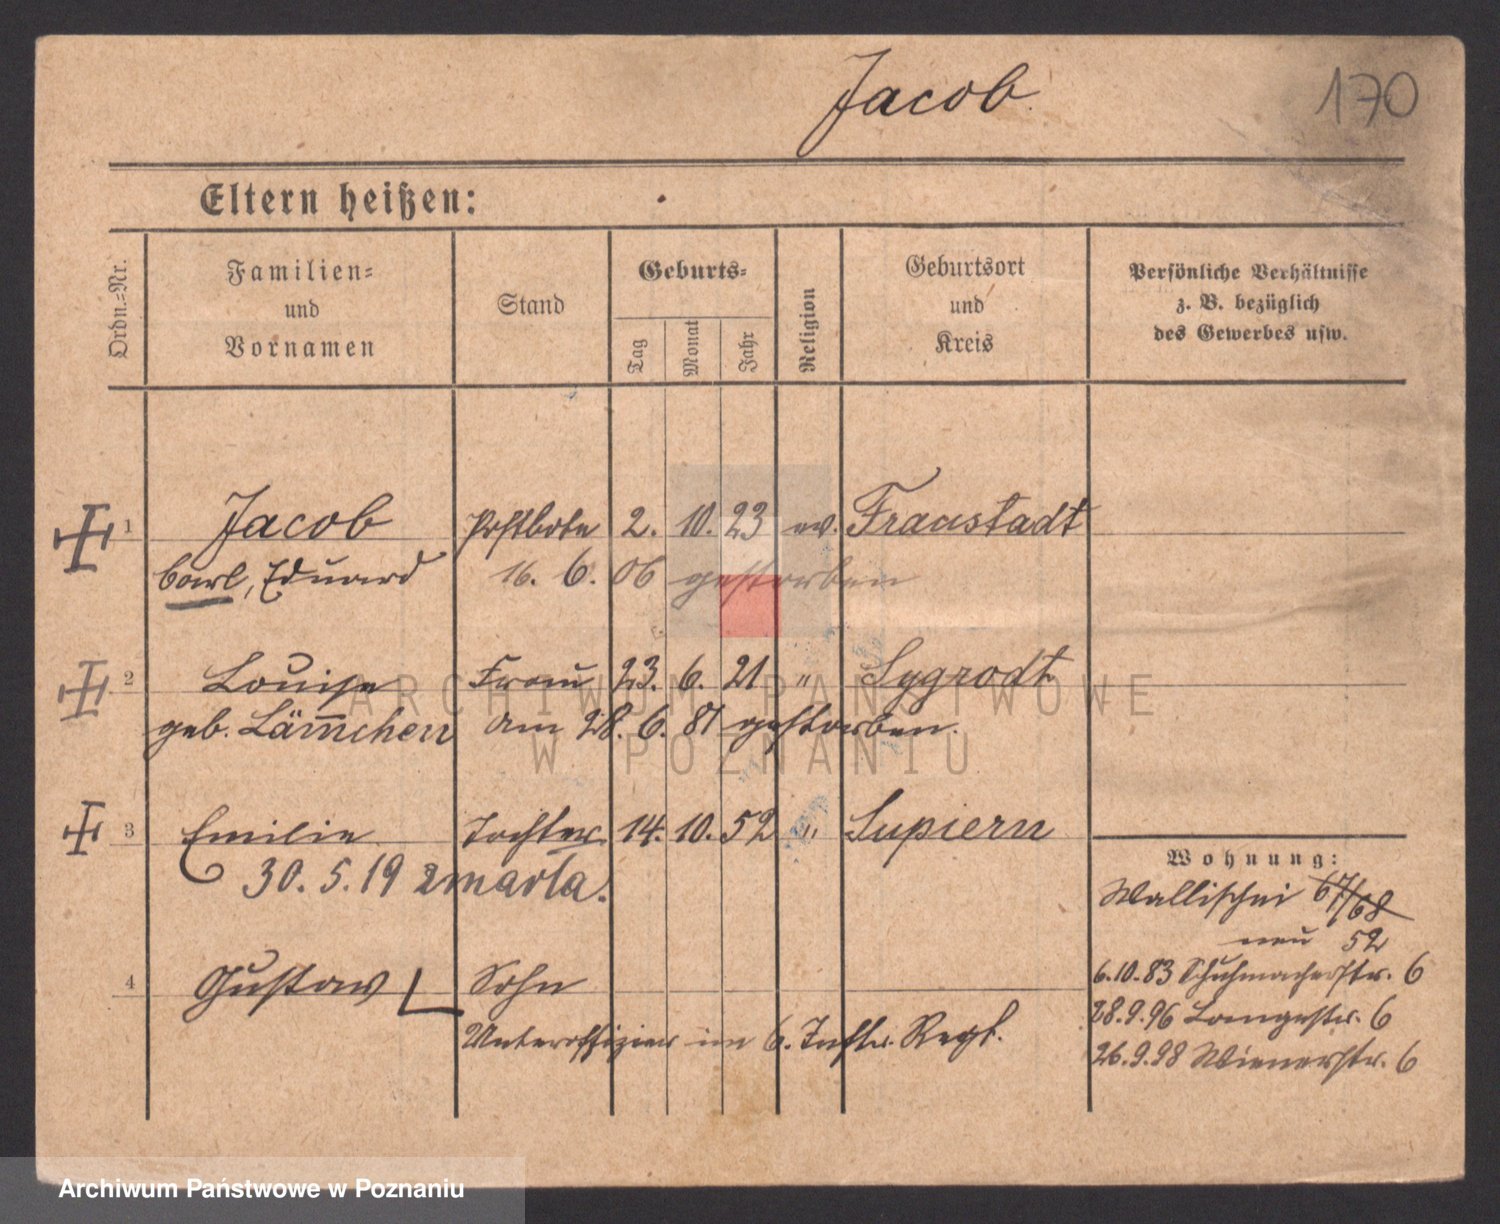 Jacob
170
Eltern heißen:
Ordn.=Nr.
Familien=
und
Vornamen
Stand
Geburts=
Tag
Monat
Jahr
Religion
Geburtsort
und
Kreis
Persönliche Verhältnisse
z. B. bezüglich
des Gewerbes usw.
1 Jacob Postbote 2. 10. 23 ev. Fraustadt
Carl, Eduard 16. 6. 06 gestorben
2 Louise Frau 23. 6. 21 " Sygrodt
geb. Lämmchen am 28. 6. 81 gestorben.
3 Emilie Tochter 14. 10. 52 " Supiern
30. 5. 19 zmarła.
4 Gustav Sohn
Unteroffizier im 6. Inftr. Regt.
Wohnung:
Wallischei 67/68
neu 52
6.10.83 Schuhmacherstr. 6
28.9.96 Langestr. 6
26.9.98 Wienerstr. 6
ARCHIWUM PAŃSTWOWE
W POZNANIU
Archiwum Państwowe w Poznaniu